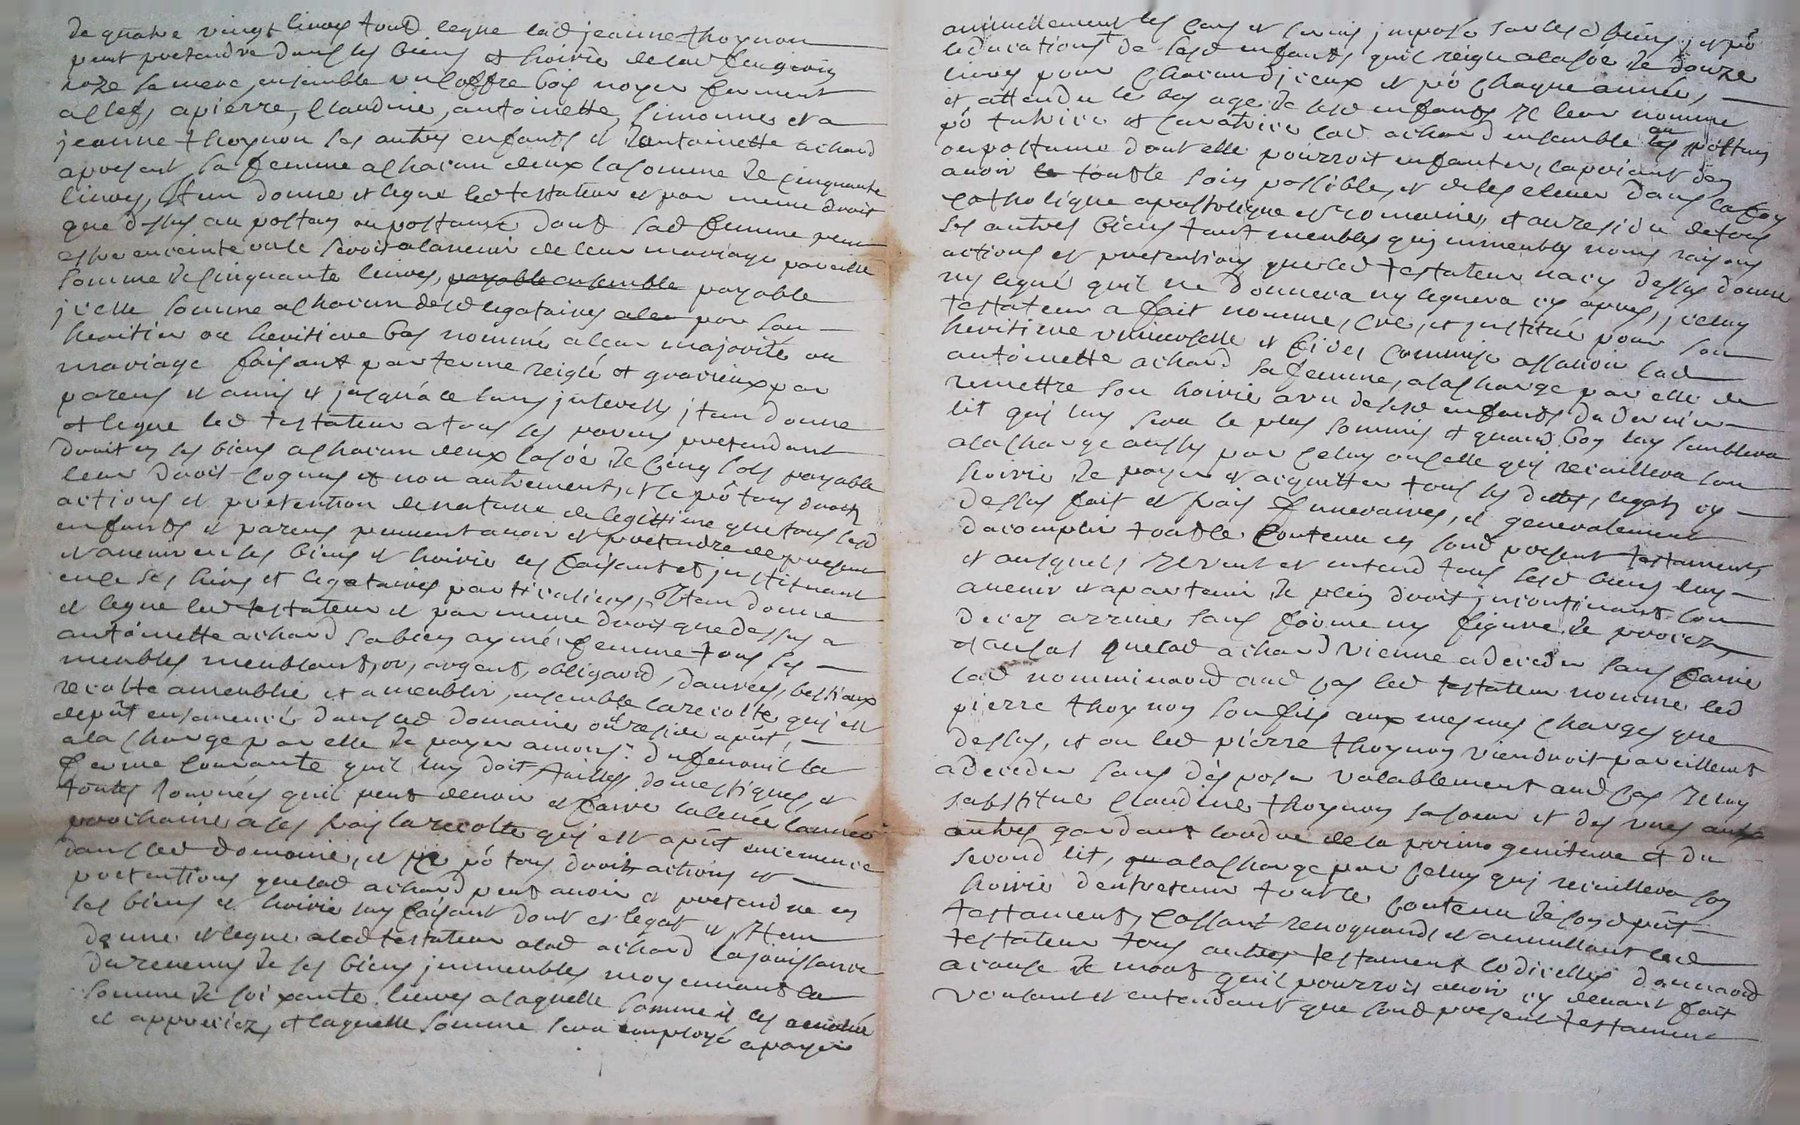 de quatre vingt livres tout ce que lad jeanne thoynon
peut pretendre dans les biens et hoirie de lad feu
roze sa mere, ensemble un coffre bois noyer fermant
a clef, a pierre, claudine, antoinette, simonne et a
jeanne thoynon ses autres enfants et dantoinette achard
apresent sa femme a chacun deux la somme de cinquante
livres, Item donne et legue led testateur et par meme droit
que dessus au postum ou postume dont sad femme peut
estre enceinte ou le seroit alavenir de leur mariage pareille
somme de cinquante livres, payable ensemble payable
jcelle somme a chacun desd legataires par son
heritier ou heritiere bas nommé a leur majorité ou
mariage faisant par terme reiglé et gracieux par
parens et amis et jusqua ce sans jnterests jtem donne
et legue led testateur a tous ses parens pretendant
droit en ses biens a chacun deux la sōe de cinq sols payable
leur droit cognus et non autrement, et ce pō tous droits
actions et pretention de nature de legittime que tous lesd
enfants et parens peuvent avoir et pretendre de present
et avenir en ses biens et hoirie les faisant et jnstituant
en ce ses hers et legataires particuliers, Item donne
et legue led testateur et par meme droit que dessus a
antoinette achard sa bien aymée femme tous ses
meubles meublant, or, argent, obligaōns, danrées, bestiaux
recolte ameublie et a meublir, ensemble la recolte qui est
a pnt ensemencé dans led domaine ou il reside apnt,
a la charge par elle de payer a
ferme courante quil luy doit tailles, domestiques, et
toutes journées quil peut devoir et faire
prochaine a ses frais la recolte qui est a pnt encemencé
dans led domaine, et ce pō tous droits actions et
pretentions que lad achard peut avoir et pretendre en
ses biens et hoirie luy faisant dont et legat et Item
donne et legue aled testateur a lad achard la jouissance
du revenus de ses biens jmmeubles moyennant la
somme de soixante livres a laquelle somme il les a
et appreciez, et laquelle somme sera employé a payer
annuellement les cens et servis jmposé sur lesd biens, et pō
leducation de lesd enfants, quil reigle a la sōe de douze
livres pour chacun diceux et pō chaque année,
et attendu le bas age de lesd enfants Il leur nomme
pō tutrice et curatrice lad achard ensemble au posthum
ou postume dont elle pourroit enfanter, la priant den
avoir tout le soin possible, et de les elever dans la foy
catholique apostolique et romaine, et au residu de tous
ses autres biens tant meubles que immeubles noms raisons
actions et pretentions que led testateur na cy dessus donné
ny legué quil ne donnera ny leguera cy apres, jceluy
testateur a fait nommé, cré, et jnstitué pour son
heritiere universelle et fidei commise assavoir lad
antoinette achard sa femme, a la charge par elle de
remettre son hoirie a un de lesd enfants du dernier
lit qui luy sera le plus soumis et quand bon luy semblera
a la charge aussy par celuy ou celle qui recuillera son
hoirie de payer et acquitter tous ses dettes, legats cy
dessus fait et frais funeraires, et generalement
dacomplir tout le contenu en sond present testament
et ausquels Il veut et entend tous lesd biens luy
avenir et apartenir de plein droit, jncontinant son
decez arrivé sans forme ny figure de procez,
et au cas que lad achard vienne a deceder sans faire
lad nomminaōn aud cas led testateur nomme led
pierre thoynon son fils aux mesmes charges que
dessus, et ou led pierre thoynon viendroit pareillemt
a deceder sans disposer valablement aud cas Il luy
substitue claudine thoynon sa soeur et des unes aux
autres gardant lordre de la primo geniture et du
second lit, a la charge par celuy qui recuillera son
hoirie dentretenir tout le contenu de sond pnt
testament, cassant revoquand, et annullant led
testateur tous autres testament codicelles donnaōns
a cause de mort quil pourroit avoir cy devant fait
voulant et entendant que sond present testament